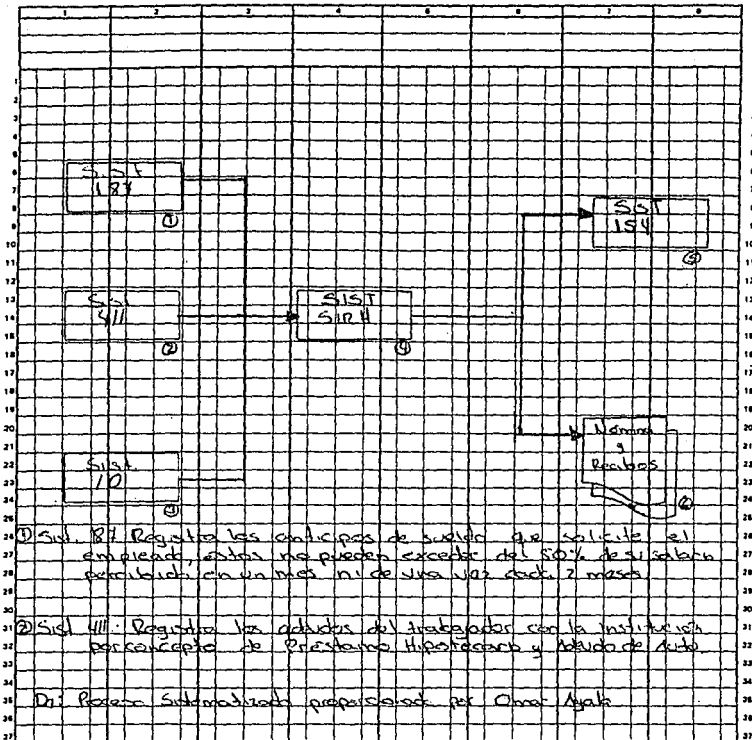 Sist
187
①
Sist
411
②
Sist
10
③
SIST
SIRH
④
Sist
154
⑤
Nomina
y
Recibos
⑥
① Sist. 187 Registra los anticipos de sueldo que solicite el
empleado, estos no pueden exceder del 50% de su salario
percibido en un mes ni de una vez cada 2 meses
② Sist 411: Registra los adeudos del trabajador con la institución
por concepto de Préstamo Hipotecario y Adeudo de Auto.
De: Proceso Sistematizado proporcionado por Omar Ayala